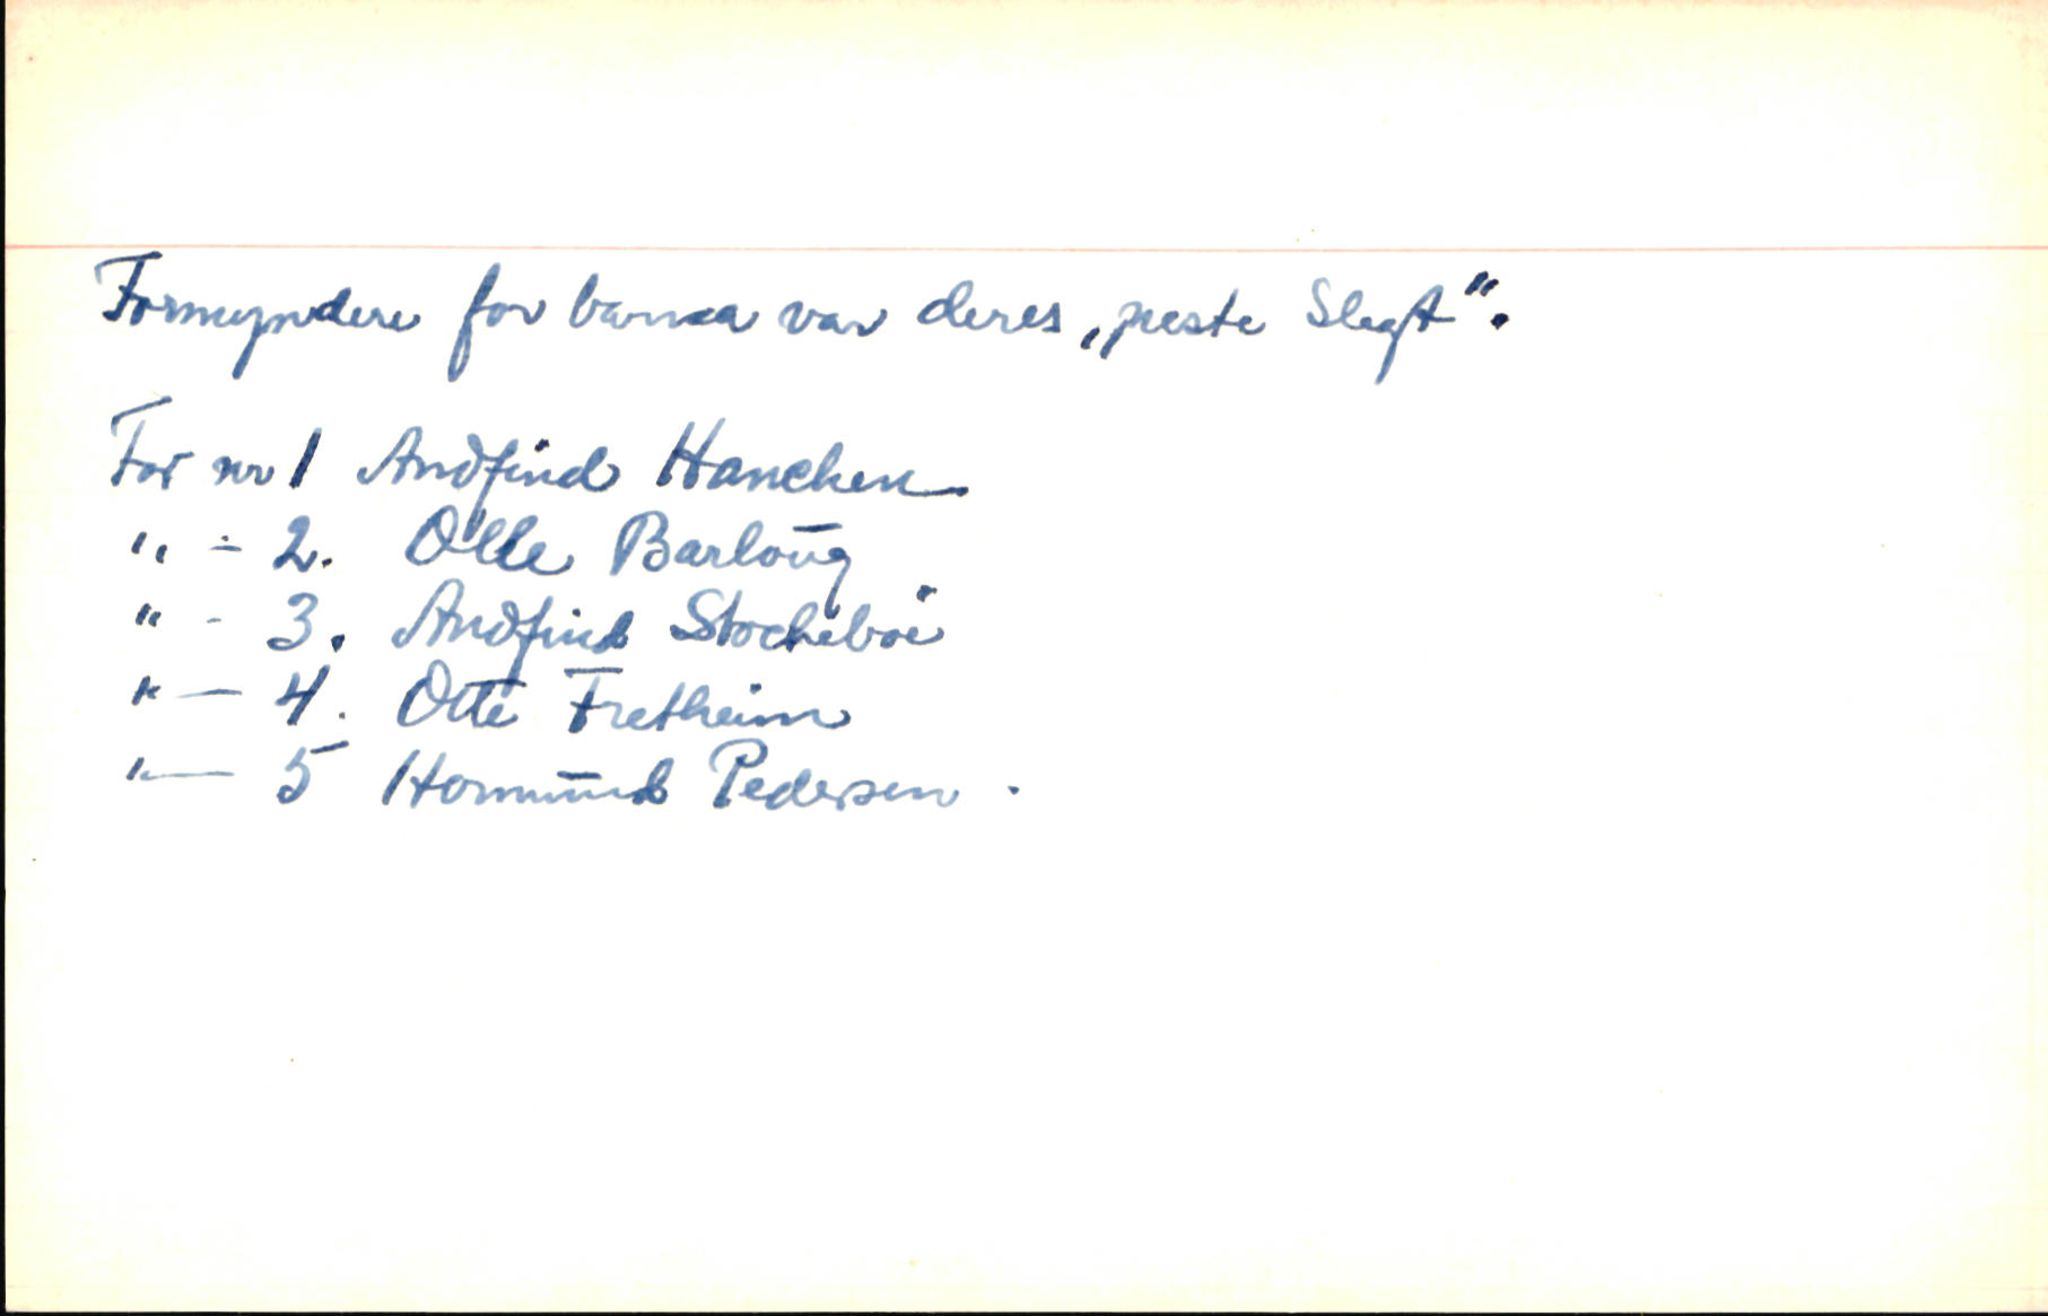 Formyndere for barna var deres „neste Slegt“.
For nr 1 Andfind Hanchen
" - 2. Olle Barloug
" - 3. Andfind Stocheboe
" — 4. Otte Fretheim
" — 5 Hormund Pedersen.